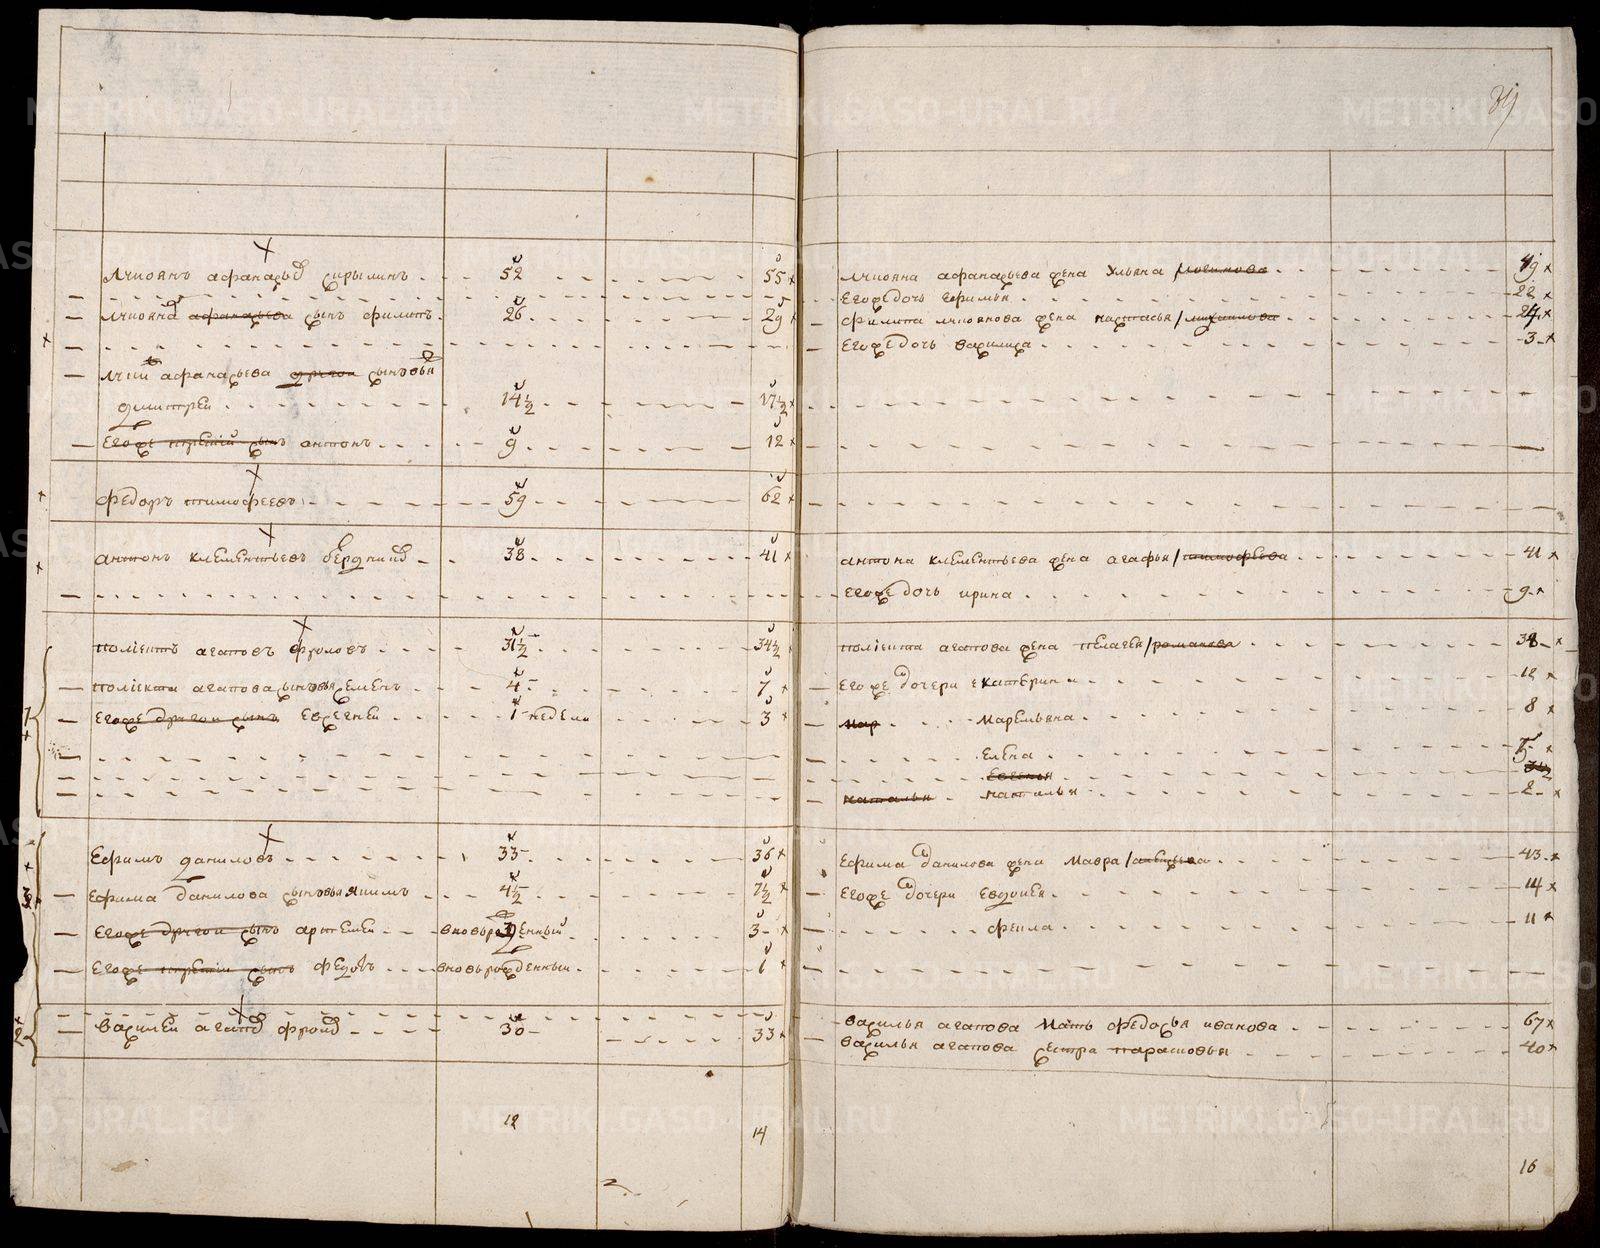 39
Лукоянъ афанасьевъ сырылинъ 52 55
Лукояна афанасьева сынъ филипъ 26 29
афанасьева другой сыновья
дмитреи 14½ 17½
Егоже третий сынъ антонъ 9 12
федоръ тимофеевъ 59 62
антонъ клементьевъ бердниковъ 38 41
полиектъ агаповъ фроловъ 31½ 34½
полиекта агапова сыновья семенъ 4 7
Егоже другой сынъ евсегнеи 1 недели 3
Ефимъ даниловъ 33 36
Ефима данилова сыновья якимъ 4½ 7½
Егоже другои сынъ артемеи вновьрожденный 3
Егоже третии сынъ федоръ вновьрожденныи 1
василеи агаповъ фроловъ 30 33
12 14
Лукояна афанасьева жена ульяна 49
Егоже дочь ефимья 22
филипа лукоянова жена настасья михаилова
Егоже дочь василиса 3
антона клементьева жена агафья тимофеева 41
Егоже дочь ирина 9
полиекта агапова жена пелагея романова 38
Егоже дочери екатерина 12
мар маремьяна 8
Елена
Евгенья
наталья наталья 2
Ефима данилова жена мавра 43
Егоже дочери евдокия 14
фекла 11
василья агапова мать федосья иванова 67
василья агапова сестра парасковья 40
16